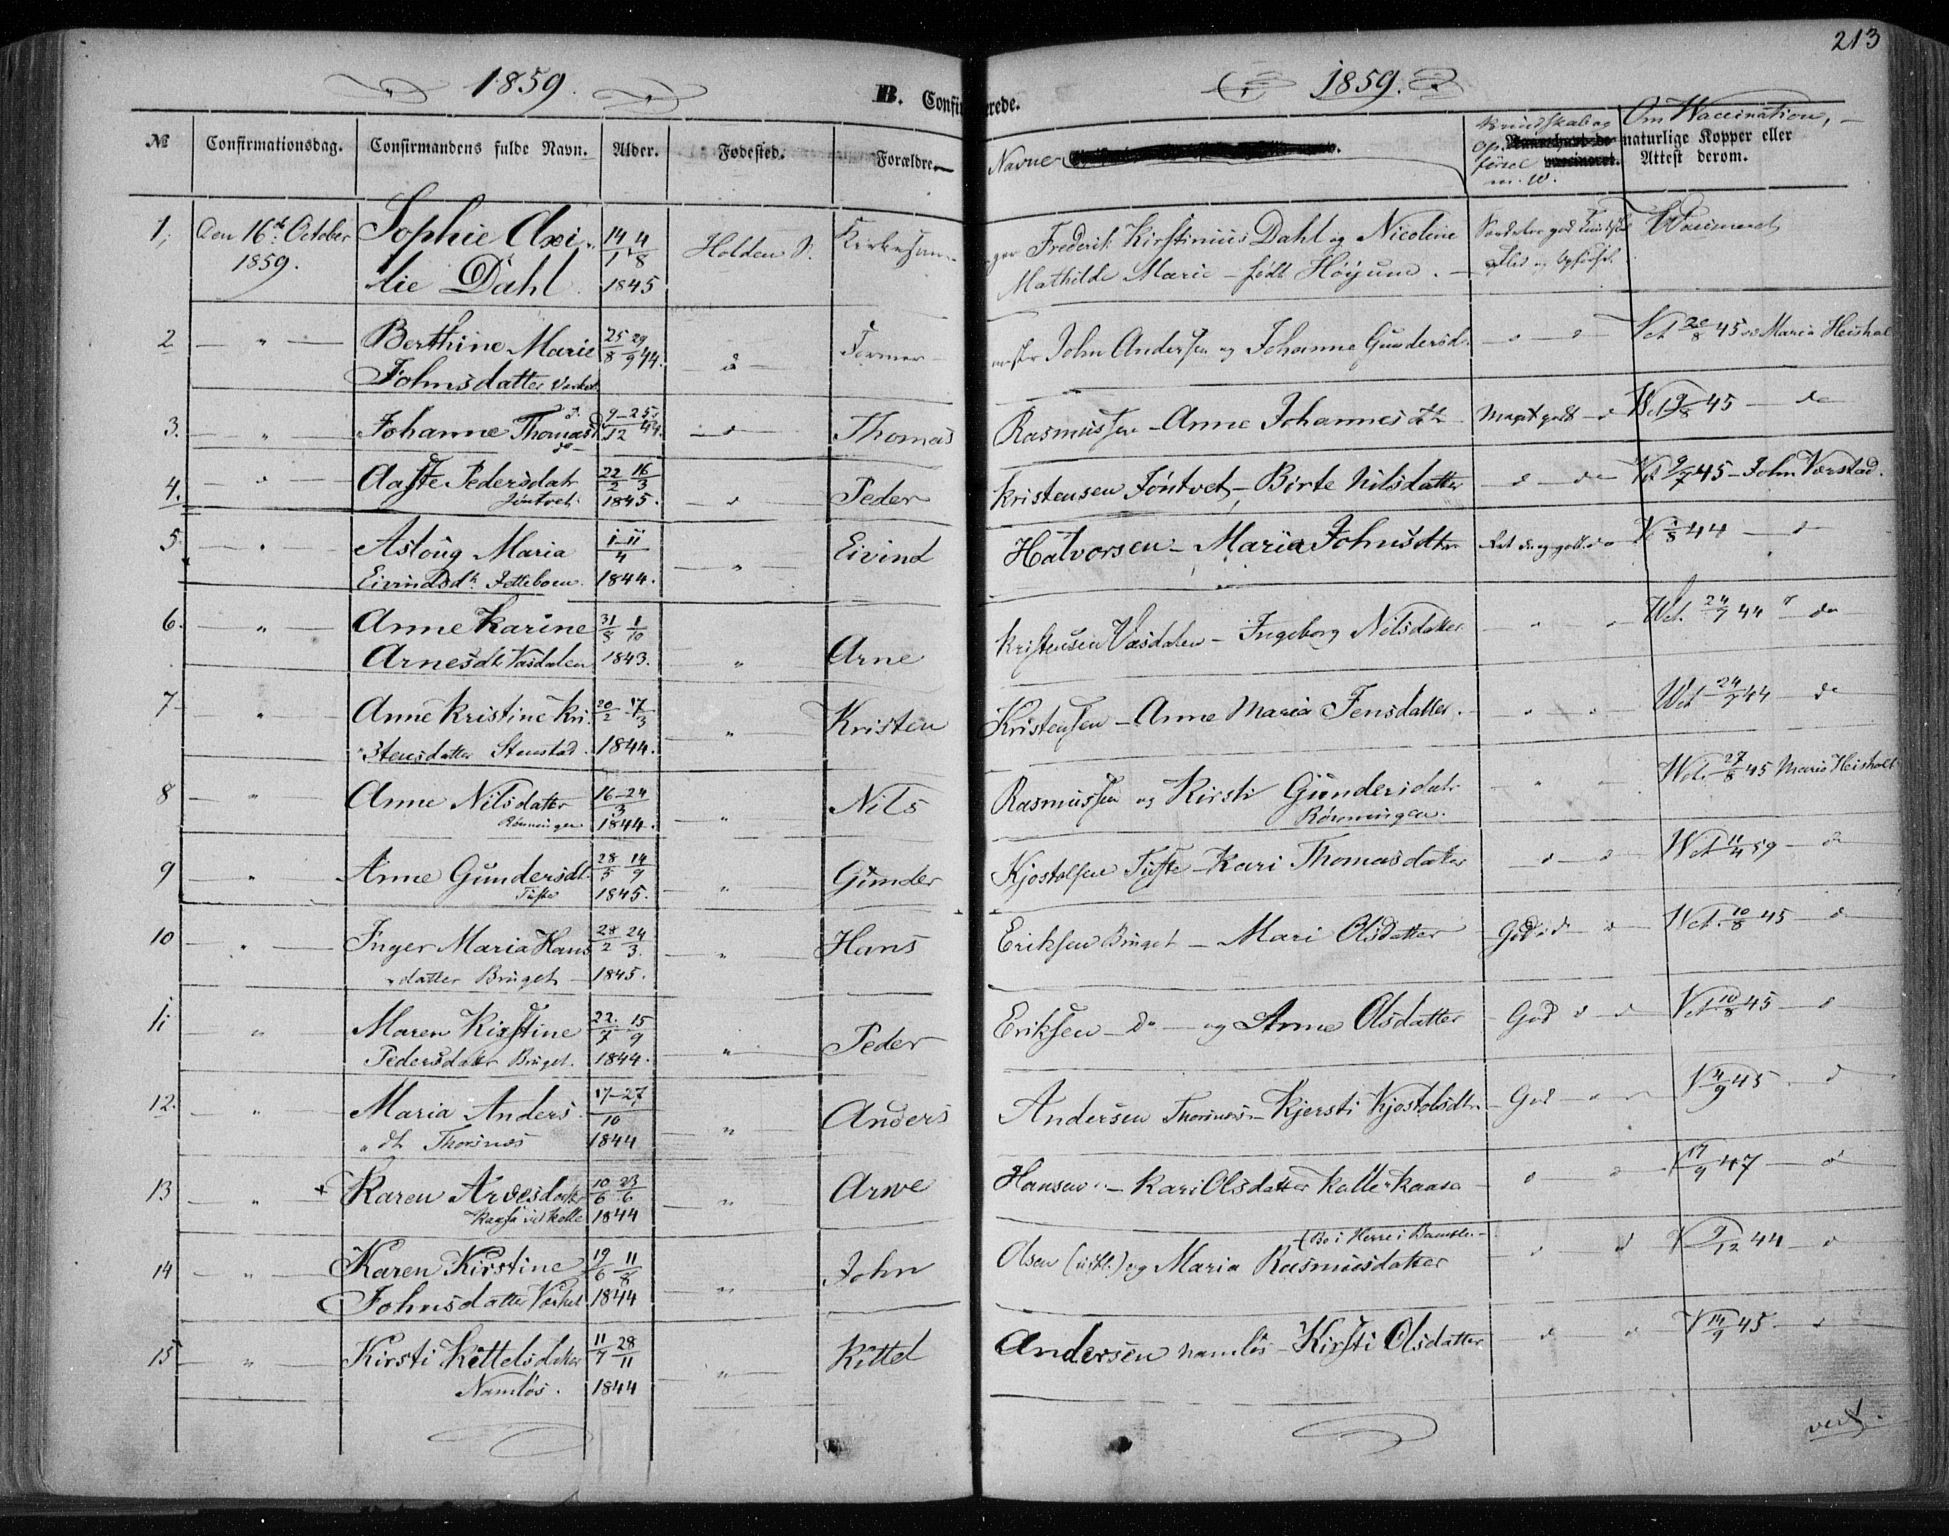 213
1859.
B. Confirmerede.
1859.
№ Confirmationsdag. Confirmandens fulde Navn. Alder. Fødested. Forældre Navne Kundskab og Opførsel m. v. Om Vaccination, naturlige Kopper eller Attest derom.
1, Den 16de October 1859. Sophie Oxilie Dahl 14 4/8 1845 Holden P. Kirkesanger Frederik Kirstinius Dahl og Nicoline Mathilde Marie - født Höyum. Vaccineret
2 " Berthine Marie Johnsdatter 25/8 29/9 44. d Formermester John Andersen og Johanne Gundersd. d d Vct 20/8 45 Maria Heisholt
3. " Johanne Thomasd 9-25/12 44. d Thomas Rasmussen - Anne Johannesdtr Meget godt d Vct 19/8 45 - do
4. " Aaste Pedersdatr Jöntvet 22/2 16/3 1845. d Peder Kristensen Jöntvet, - Birte Nilsdatter d do Vct 9/7 45 - John Værstad.
5 " Aslöug Maria Eivindsdtr 1-11/4 1844. " Eivind Halvorsen - Maria Johnsdtr V 1/8 44 d
6. " Anne Karine Arnesdt. Vasdalen 31/8 1/10 1843. " Arne Kristensen Vasdalen - Ingeborg Nilsdatter " " Vct. 24/7 44 do
7 " Anne Kristine Kristensdatter Stenstad 20/2 17/3 1844. " Kristen Kristensen - Anne Maria Jensdatter. " " Vct 24/7 44 do
8 " Anne Nilsdatter Rönningen 16-24/3 1844. " Nils Rasmussen og Kirsti Gündersdatr Rönningen. " " Vct. 27/8 45 Maria Heisholt
9 " Anne Gündersdt. Tufte 28/5 14/9 1845. " Günder Kjostolsen Tufte - Kari Thomasdatter d d Vct 11/4 59 - do
10 " Inger Maria Hansdatter Brüget 28/2 24/3. 1845. " Hans Eriksen Brüget - Mari Olsdatter God d d Vct. 10/8 45 d
11 " Maren Kirstine Pedersdatr Brüget. 22./7 15/9 1844. " Peder Eriksen - Do - og Anne Olsdatter God d d Vct 10/8 45 - d
12. " Maria Andersdt. Thorsnæs 17-27/10 1844 " Anders Andersen Thorsnæs - Kjersti Kjostolsdtr. God V 4/9 45 d
13 " + Karen Arvesdatter Kaasa ved Kolle 10/6 23/6 1844 " Arve Hansen - Kari Olsdatter Kolle Kaasa d d V 17/9 47 - d
14 " Karen Kirstine Johnsdatter 19/6 11/8 1844 " John Olsen og Maria Rasmusdatter (Bo i Herre i Bamble. d d V 9/12 44 - d
15 " Kirsti Kittelsdatter Namlös. 11/7 28/11 1844 " Kittel Andersen Namlös - Kirsti Olsdatter d d V 14/9 45. d
vert.